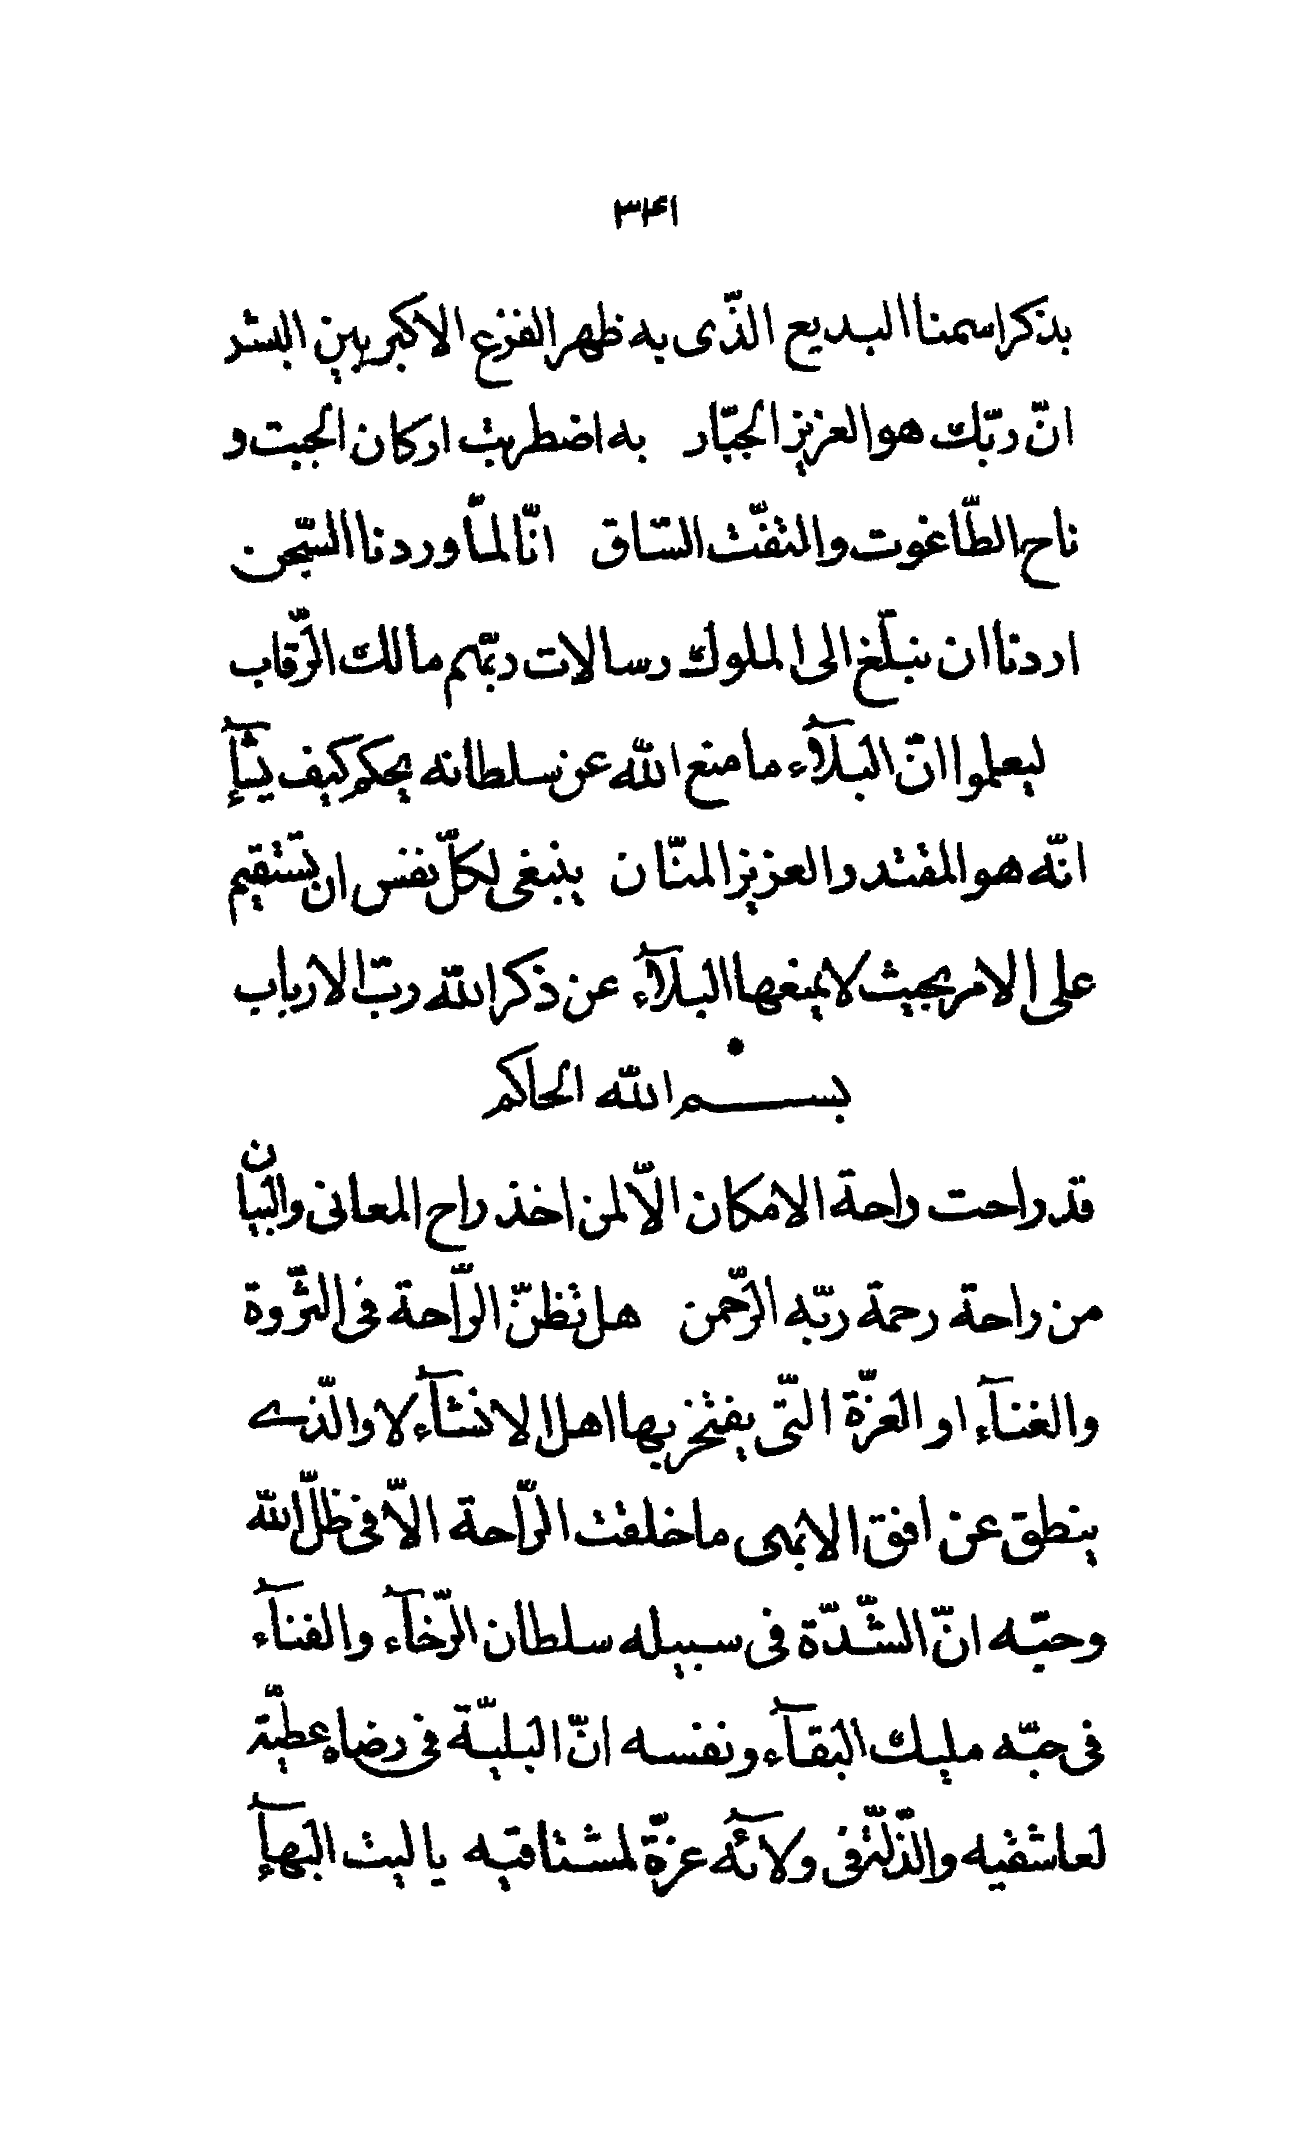 ٣٤١
بذكر اسمنا البديع الذّى به ظهر الفزع الاكبر بين البشر
انّ ربّك هو العزيز الجبّار به اضطربت اركان الجبت و
ناح الطّاغوت والتفّت السّاق انّا لمّا وردنا السّجن
اردنا ان نبلّغ الى الملوك رسالات ربّهم مالك الرّقاب
ليعلموا انّ البلآء ما منع الله عن سلطانه يحكم كيف يشآء
انّه هو المقتدر العزيز المنّان ينبغى لكلّ نفس ان يستقيم
على الامر بحيث لا يمنعها البلآء عن ذكر الله ربّ الارباب
*
بسم الله الحاكم
قد راحت راحة الامكان الّا لمن اخذ راح المعانى والبيان
من راحة رحمة ربّه الرّحمن هل تظنّ الرّاحة فى الثّروة
والغنآء او العزّة الّتى يفتخر بها اهل الانشآء لا والّذى
ينطق عن افق الابهى ما خلقت الرّاحة الّا فى ظلّ الله
وحبّه انّ الشّدّة فى سبيله سلطان الرّخآء والفنآء
فى حبّه مليك البقآء ونفسه انّ البليّة فى رضاه عطيّة
لعاشقيه والذّلّة فى ولائه عزّة لمشتاقيه يا ليت البهآء